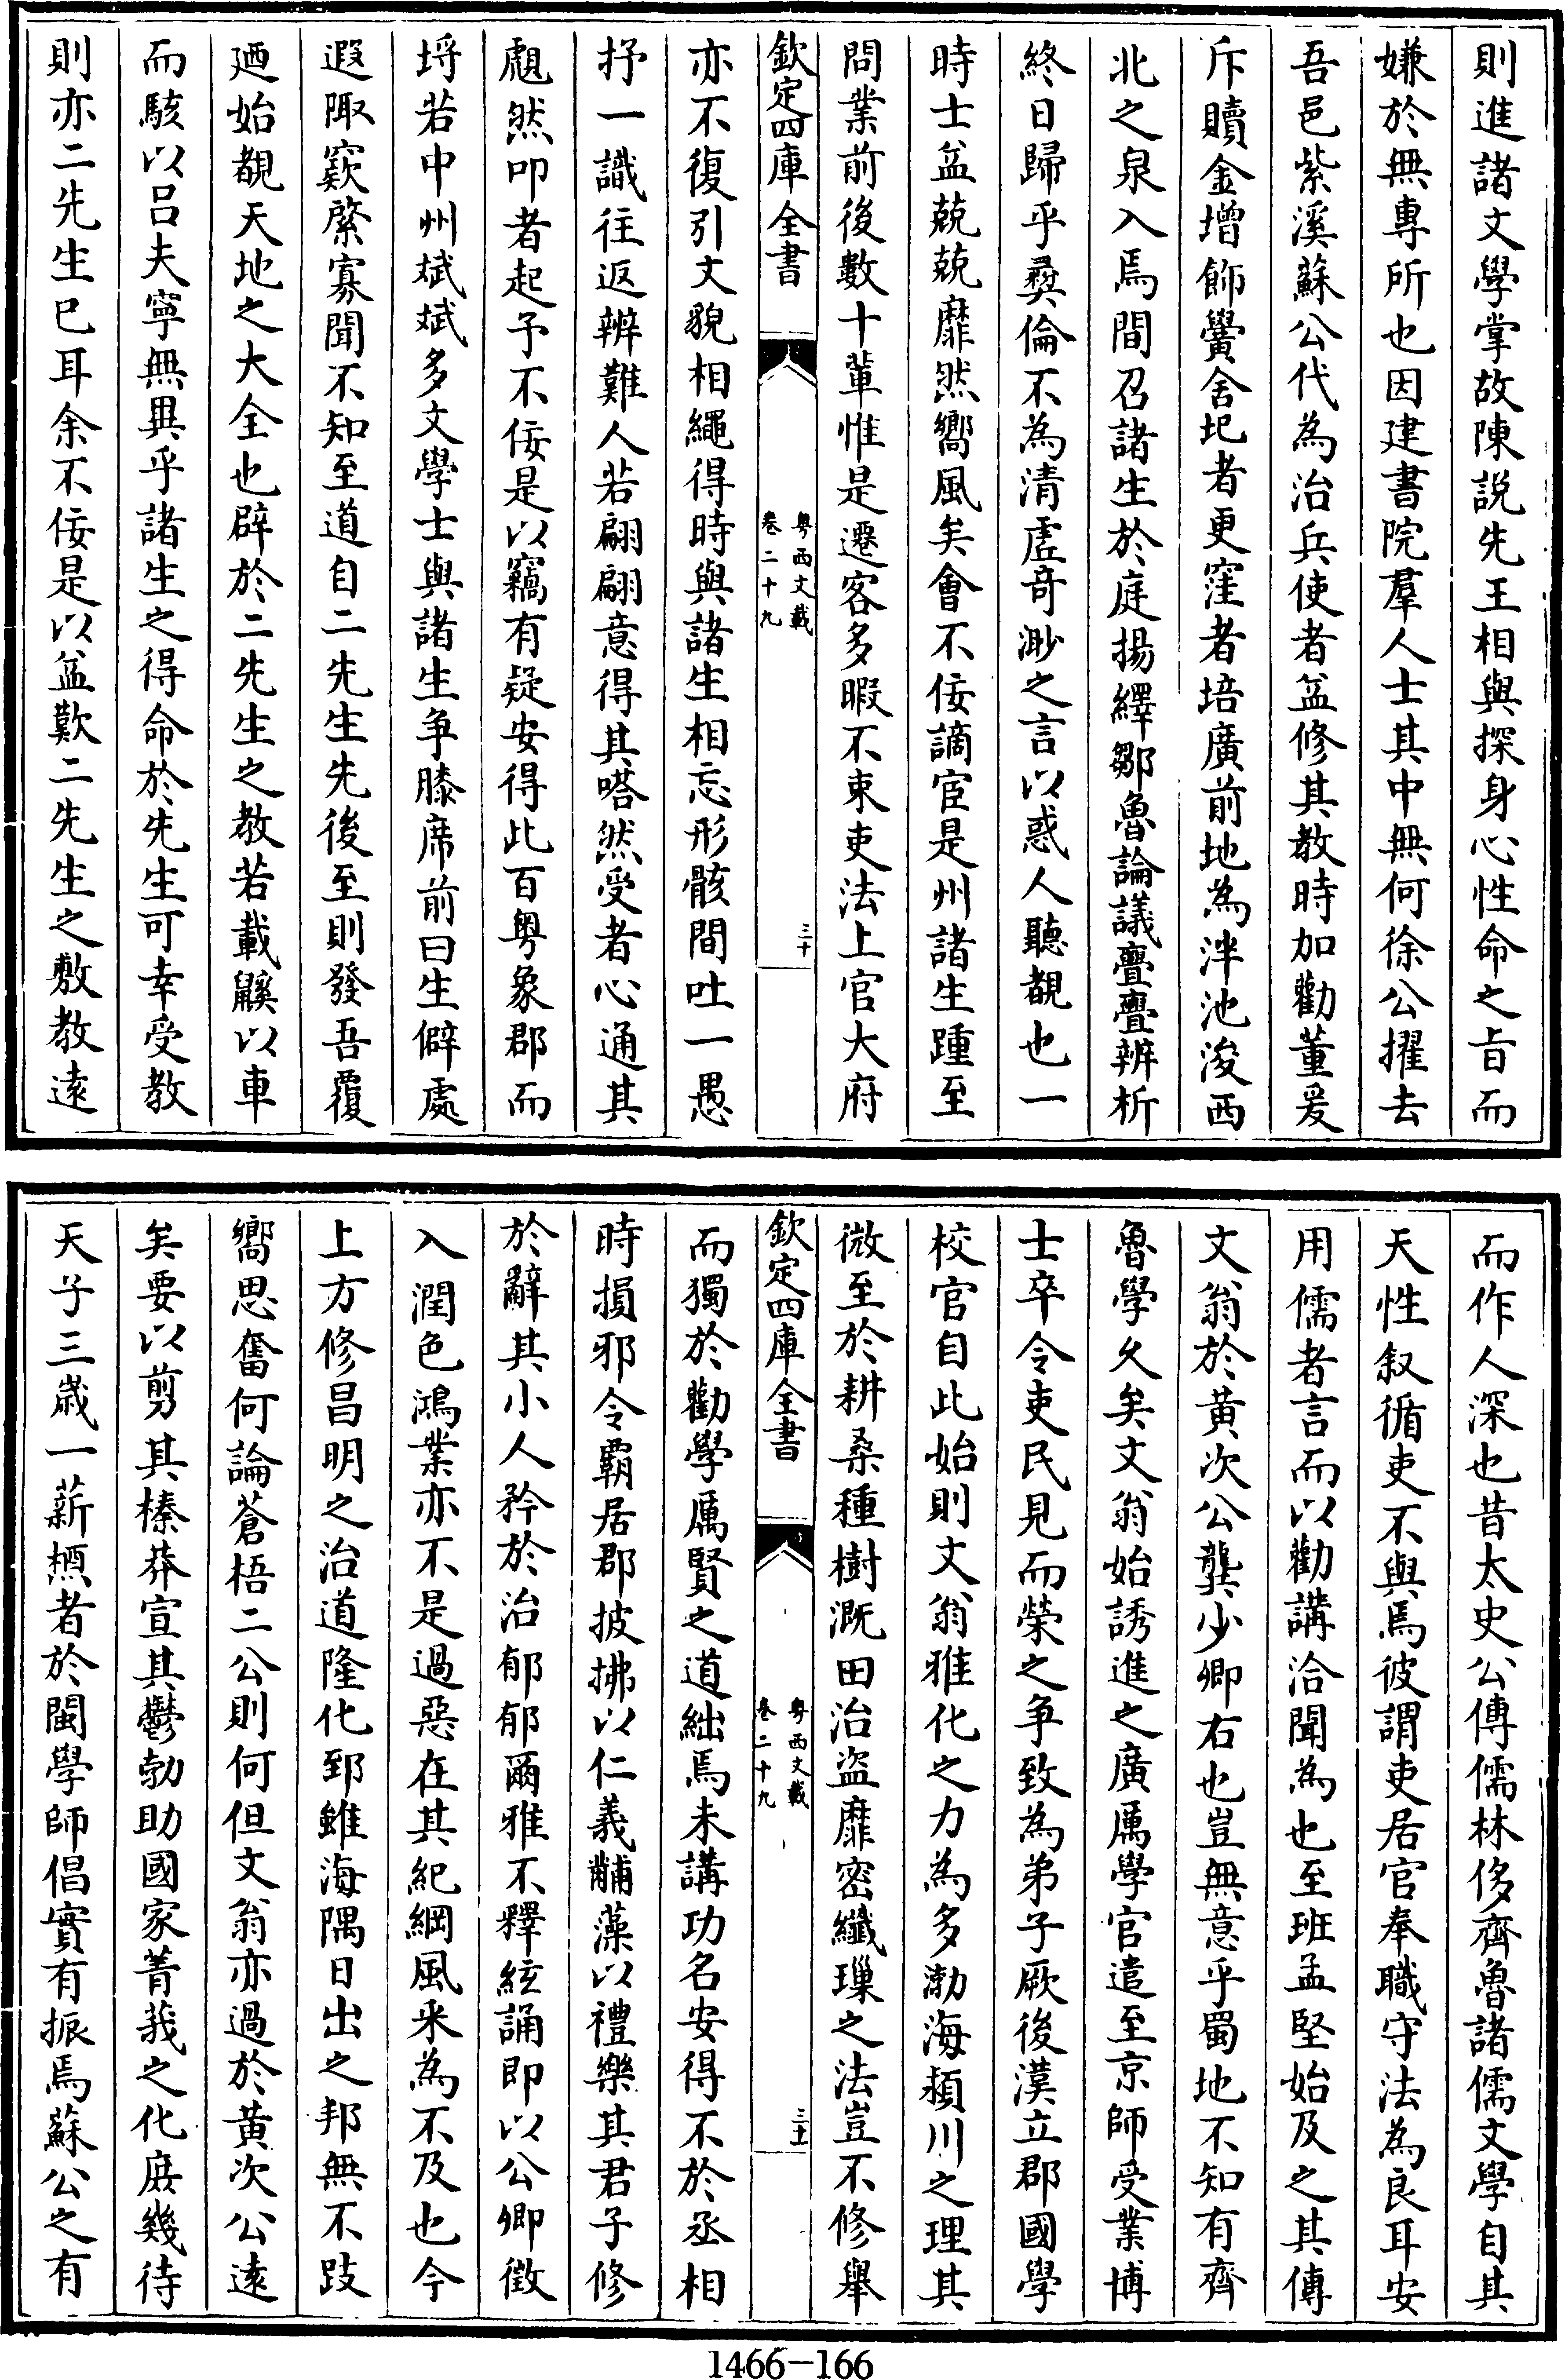 則進諸文學掌故陳説先王相與探身心性命之旨而
嫌於無專所也因建書院羣人士其中無何徐公擢去
吾邑紫溪蘇公代為治兵使者益修其教時加勸董爰
斥贖金增飾黌舍圮者更窪者培廣前地為泮池浚西
北之泉入焉間召諸生於庭揚繹鄒魯論議亹亹辨析
終日歸乎彛倫不為清虛奇渺之言以惑人聽覩也一
時士益兢兢靡然嚮風矣會不佞謫宦是州諸生踵至
問業前後數十輩惟是遷客多暇不束吏法上官大府
欽定四庫全書
粤西文載
卷二十九
三十
亦不復引文貌相繩得時與諸生相忘形骸間吐一愚
抒一識往返辨難人若翩翩意得其嗒然受者心通其
覤然叩者起予不佞是以竊有疑安得此百粤象郡而
埓若中州斌斌多文學士與諸生争膝席前曰生僻處
遐陬窾綮寡聞不知至道自二先生先後至則發吾覆
廼始覩天地之大全也辟於二先生之教若載鼷以車
而駭以吕夫寧無異乎諸生之得命於先生可幸受教
則亦二先生已耳余不佞是以益歎二先生之敷教逺
而作人深也昔太史公傳儒林侈齊魯諸儒文學自其
天性叙循吏不與焉彼謂吏居官奉職守法為良耳安
用儒者言而以勸講洽聞為也至班孟堅始及之其傳
文翁於黄次公龔少卿右也豈無意乎蜀地不知有齊
魯學久矣文翁始誘進之廣厲學官遣至京師受業博
士卒令吏民見而榮之争致為弟子厥後漢立郡國學
校官自此始則文翁雅化之力為多渤海潁川之理其
微至於耕桑種樹溉田治盜靡密纖璅之法豈不修舉
欽定四庫全書
粤西文載
卷二十九
三十一
而獨於勸學厲賢之道絀焉未講功名安得不於丞相
時損邪令霸居郡披拂以仁義黼藻以禮樂其君子修
於辭其小人矜於治郁郁爾雅不釋絃誦即以公卿徴
入潤色鴻業亦不是過惡在其紀綱風采為不及也今
上方修昌明之治道隆化郅雖海隅日出之邦無不跂
嚮思奮何論蒼梧二公則何但文翁亦過於黄次公逺
矣要以剪其榛莽宣其鬱勃助國家菁莪之化庻幾待
天子三歳一薪槱者於閩學師倡實有振焉蘇公之有
1466—166